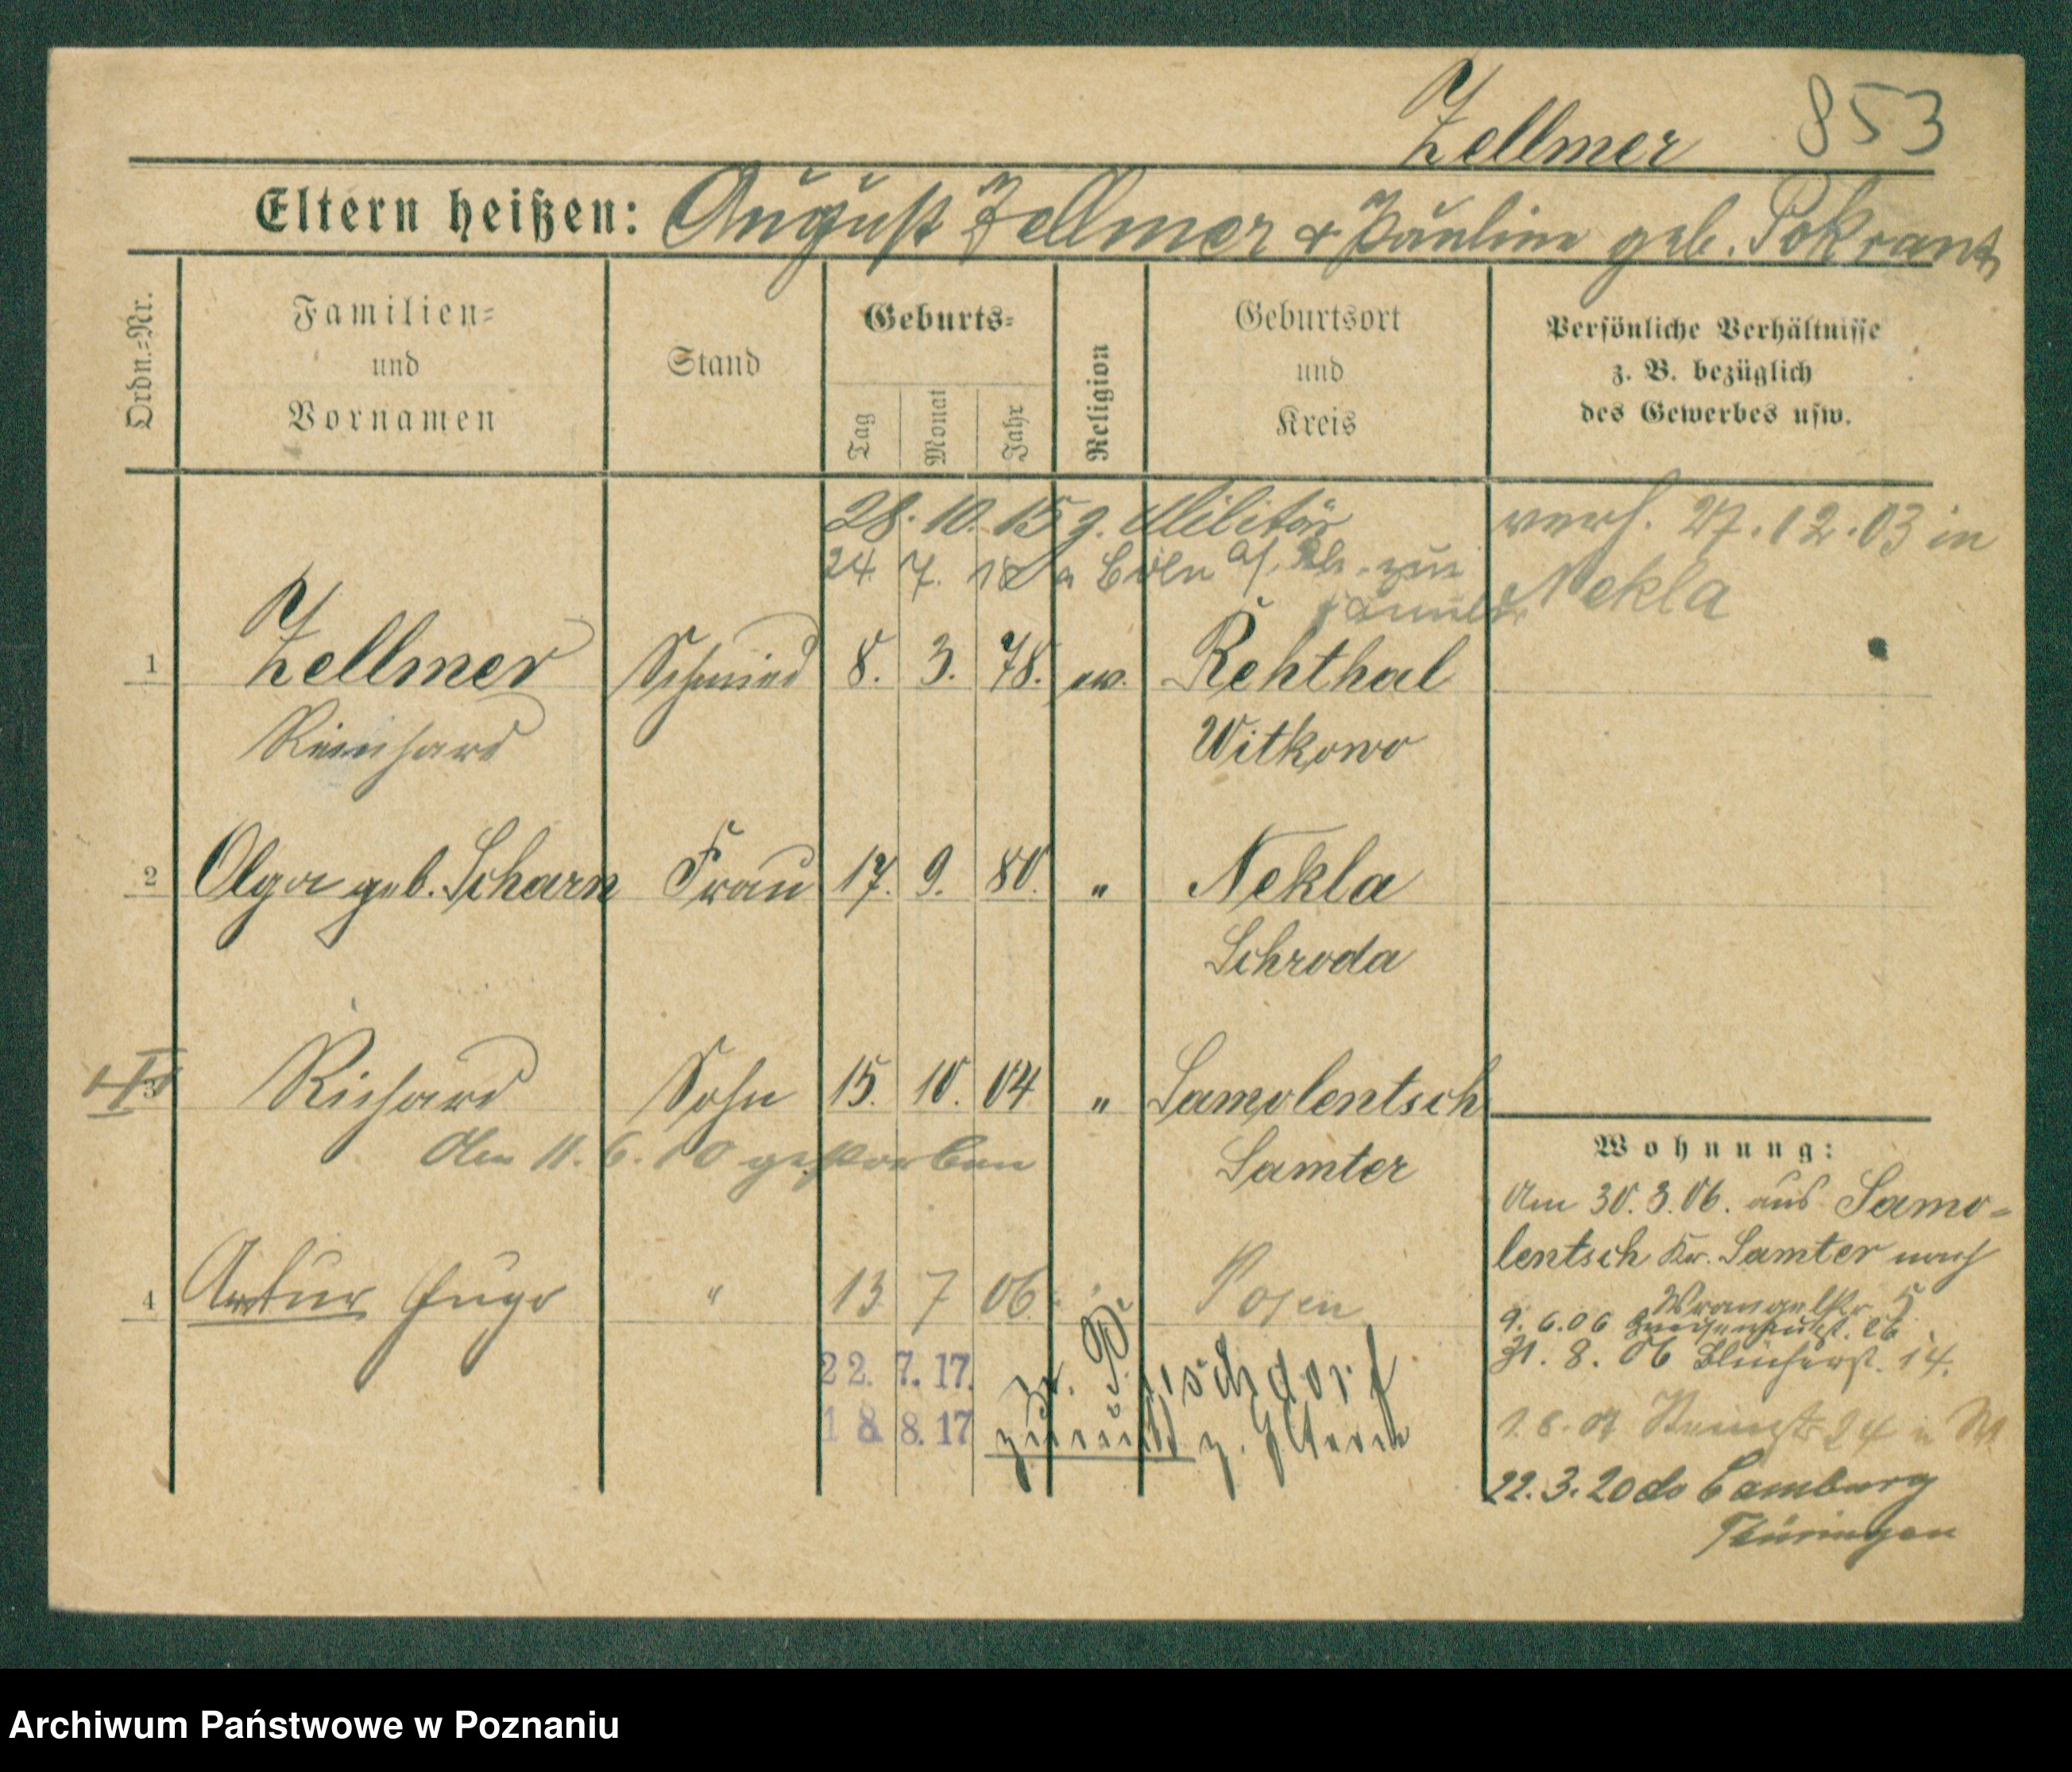 Zellmer 853
Eltern heißen: August Zellmer & Pauline geb. Pokrant
Ordn.-Nr.
Familien- und Vornamen
Stand
Geburts-
Tag Monat Jahr
Religion
Geburtsort und Kreis
Persönliche Verhältnisse
z. B. bezüglich
des Gewerbes usw.
28. 10. 15 g. Militär
24. 7. 18 a Cöln a/Rh. zur
verh. 27.12.03 in
Nekla
1 Zellmer Schmied 8. 3. 78. ev. Rehthal
Reinhard Witkowo
2 Olga geb. Scharn Frau 17. 9. 80. " Nekla
Schroda
3 Richard Sohn 15. 10. 04 " Samolentsch
den 11. 6. 10 gestorben Samter
4 Artur Hugo " 13 7 06. " Posen
22. 7. 17.
18 8. 17 zurück z. Eltern
Wohnung:
Am 30. 3. 06. aus Samo-
lentsch Kr. Samter nach
Wrangelstr. 5
9. 6.06
31. 8. 06 Blücherst. 14.
24
22.3.20 do Camburg
Thüringen
Archiwum Państwowe w Poznaniu